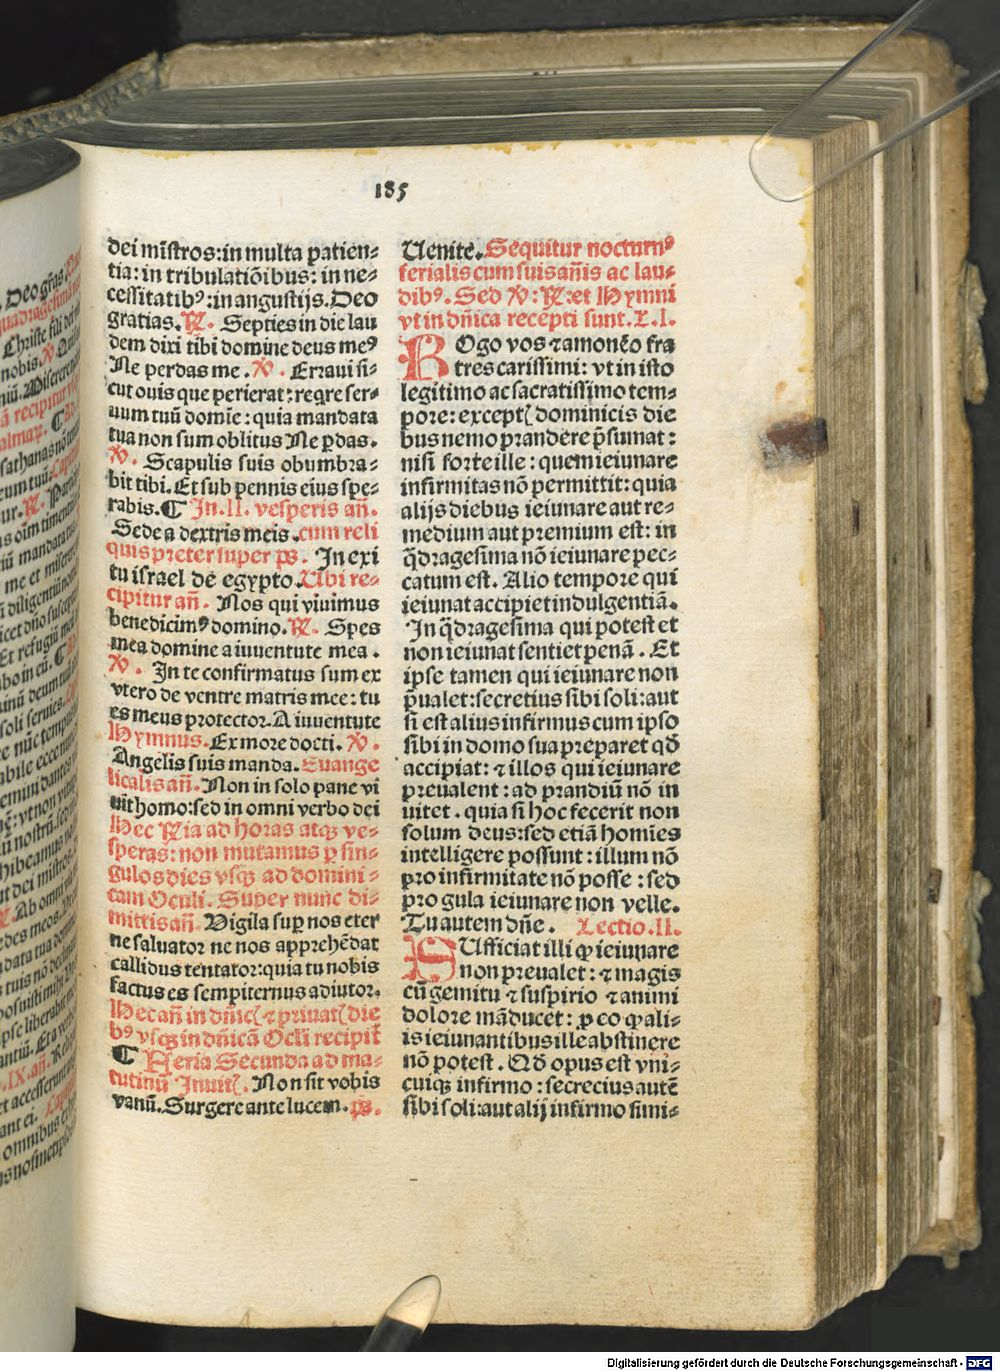 185
dei mĩstros: in multa patien⸗
tia: in tribulatiõibus: in ne⸗
cessitatibꝰ: in angustijs. Deo
gratias. ℟. Septies in die lau
dem dixi tibi domine deus meꝰ
Ne perdas me. ℣. Erraui si⸗
cut ouis que perierat: reqre ser⸗
uum tuũ domĩe: quia mandata
tua non sum oblitus Ne ꝑdas.
℣. Scapulis suis obumbra⸗
bit tibi. Et sub pennis eius spe⸗
rabis. ¶ In. II. vesperis añ.
Sede a dextris meis. cum reli
quis preter super ps. In exi
tu israel de egypto. Ubi re⸗
cipitur añ. Nos qui viuimus
benedicimꝰ domino. ℟. Spes
mea domine a iuuentute mea.
℣. In te confirmatus sum ex
vtero de ventre matris mee: tu
es meus protector. A iuuentute
Hymnus. Ex more docti. ℣.
Angelis suis manda. Euange
licalis añ. Non in solo pane vi
uit homo: sed in omni verbo dei
Hec ℟ia ad horas atqꝫ ve⸗
speras: non mutamus ꝑ sin⸗
gulos dies vsqꝫ ad domini⸗
cam Oculi. Super nunc di⸗
mittis añ. Vigila suꝑ nos eter
ne saluator ne nos apprehẽdat
callidus tentator: quia tu nobis
factus es sempiternus adiutor.
Hec añ in dñicꝭ ⁊ priuatꝭ die
bꝰ vsqꝫ in dñicã Ocĺi recipit̃
¶ Feria Secunda ad ma⸗
tutinũ Inuitꝭ. Non sit vobis
vanũ. Surgere ante lucem. ps.
Uenite. Sequitur nocturnꝰ
ferialis cum suis añis ac lau⸗
dibꝰ. Sed ℣: ℟: et Hymni
vt in dñica recepti sunt. L. I.
ROgo vos ⁊ amonẽo fra
tres carissimi: vt in isto
legitimo ac sacratissimo tem⸗
pore: exceptꝭ dominicis die
bus nemo prandere p̃sumat:
nisi forte ille: quem ieiunare
infirmitas nõ permittit: quia
alijs diebus ieiunare aut re⸗
medium aut premium est: in
q̃dragesima nõ ieiunare pec⸗
catum est. Alio tempore qui
ieiunat accipiet indulgentiã.
In q̃dragesima qui potest et
non ieiunat sentiet penã. Et
ipse tamen qui ieiunare non
p̃ualet: secretius sibi soli: aut
si est alius infirmus cum ipso
sibi in domo sua preparet qđ
accipiat: ⁊ illos qui ieiunare
preualent: ad prandiũ nõ in
uitet. quia si hoc fecerit non
solum deus: sed etiã homĩes
intelligere possunt: illum nõ
pro infirmitate nõ posse: sed
pro gula ieiunare non velle.
Tu autem dñe. Lectio. II.
SUfficiat illi ꝙ ieiunare
non preualet: ⁊ magis
cũ gemitu ⁊ suspirio ⁊ animi
dolore mãducet: ꝓ eo ꝙ ali⸗
is ieiunantibus ille abstinere
nõ potest. Qđ opus est vni⸗
cuiqꝫ infirmo: secrecius autẽ
sibi soli: aut alij infirmo simi⸗
Digitalisierung gefördert durch die Deutsche Forschungsgemeinschaft - DFG